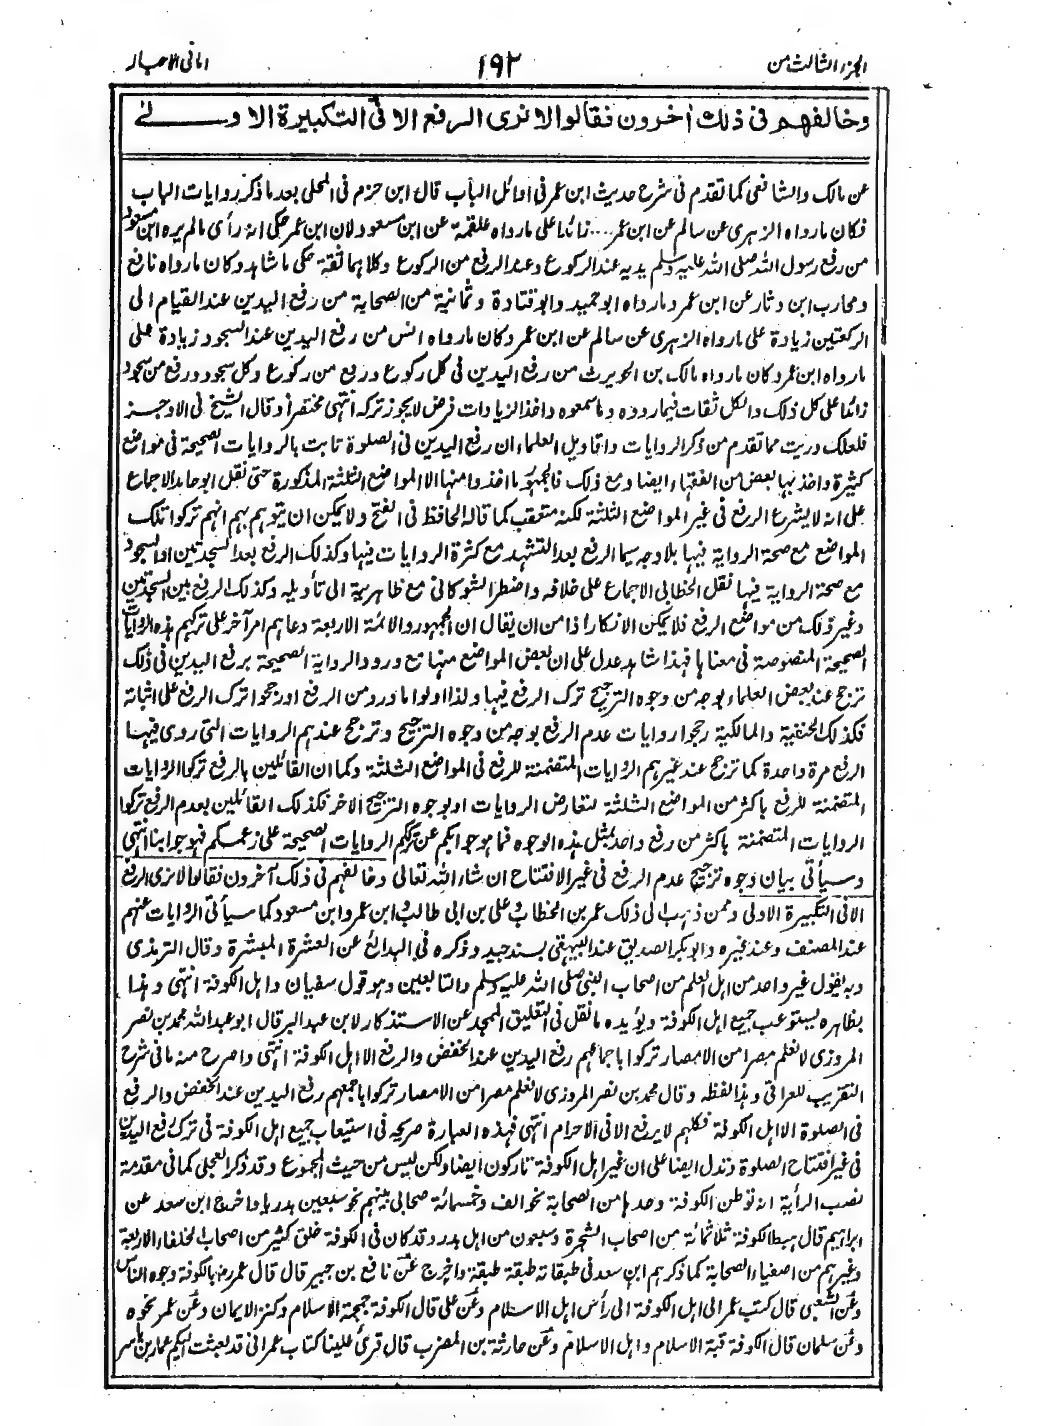 الجزء الثالث من
١٩٢
امانى الاحبار
وخالفهم فى ذلك اٰخرون فقالوا لا نرى الرفع الا فى التكبيرة الاولــــــى
عن مالك والشافعى كما تقدم فى شرح حديث ابن عمر فى اوائل الباب قال ابن حزم فى المحلى بعد ما ذكر روايات الباب
فكان ما رواه الزهرى عن سالم عن ابن عمر.... زائدا على ما رواه علقمة عن ابن مسعود لان ابن عمر حكى انه رأى ما لم يره ابن مسعود
من رفع رسول الله صلى الله عليه وسلم يديه عند الركوع وعند الرفع من الركوع وكلاهما ثقة حكى ما شاهد وكان ما رواه نافع
ومحارب ابن دثار عن ابن عمر وما رواه ابو حميد وابو قتادة وثمانية من الصحابة من رفع اليدين عند القيام الى
الركعتين زيادة على ما رواه الزهرى عن سالم عن ابن عمر وكان ما رواه انس من رفع اليدين عند السجود زيادة على
ما رواه ابن عمر وكان ما رواه مالك بن الحويرث من رفع اليدين فى كل ركوع ورفع من ركوع وكل سجود ورفع من سجود
زائدا على كل ذلك والكل ثقات فيما رووه وما سمعوه واخذ الزيادات فرض لا يجوز تركه انتهى مختصرا وقال الشيخ فى الاوجز
فلعلك دريت مما تقدم من ذكر الروايات واقاويل العلماء ان رفع اليدين فى الصلوة ثابت بالروايات الصحيحة فى مواضع
كثيرة واخذ بها بعض من الفقهاء ايضا ومع ذلك فالجمهور ما اخذوا منها الا المواضع الثلثة المذكورة حتى نقل ابو حامد الاجماع
على انه لا يشرع الرفع فى غير المواضع الثلثة لكنه متعقب كما قاله الحافظ فى الفتح ولا يمكن ان يتوهم بهم انهم تركوا تلك
المواضع مع صحة الرواية فيها بلا وجه سيما الرفع بعد التشهد مع كثرة الروايات فيها وكذلك الرفع بعد السجدتين او السجود
مع صحة الرواية فيها نقل الخطابى الاجماع على خلافه واضطر الشوكانى مع ظاهريته الى تأويله وكذلك الرفع بين السجدتين
وغير ذلك من مواضع الرفع فلا يمكن الانكار اذا من ان يقال ان الجمهور والائمة الاربعة دعاهم امر آخر على تركهم هذه الروايات
الصحيحة المنصوصة فى معناها فهذا شاهد عدل على ان بعض المواضع منها مع ورود الرواية الصحيحة برفع اليدين فى ذلك
ترجح عند بعض العلماء بوجه من وجوه الترجيح ترك الرفع فيها ولذا اولوا ما ورد من الرفع اورجحوا ترك الرفع على اثباته
فكذلك الحنفية والمالكية رجحوا روايات عدم الرفع بوجه من وجوه الترجيح وترجح عندهم الروايات التى روى فيها
الرفع مرة واحدة كما ترجح عند غيرهم الروايات المتضمنة للرفع فى المواضع الثلثة وكما ان القائلين بالرفع تركوا الروايات
المتضمنة للرفع باكثر من المواضع الثلثة لتعارض الروايات او بوجوه الترجيح الاخر فكذلك القائلين بعدم الرفع تركوا
الروايات المتضمنة باكثر من رفع واحد بمثل هذه الوجوه فما هو جوابكم عن ترككم الروايات الصحيحة على زعمكم فهو جوابنا انتهى
وسيأتى بيان وجوه ترجيح عدم الرفع فى غير الافتتاح ان شاء الله تعالى وخالفهم فى ذلك آخرون فقالوا لا نرى الرفع
الا فى التكبيرة الاولى وممن ذهب الى ذلك عمر بن الخطاب وعلى بن ابى طالب وابن عمر وابن مسعود كما سيأتى الروايات عنهم
عند المصنف وعند غيره وابو بكر الصديق عند البيهقى بسند جيد وذكره فى البدائع عن العشرة المبشرة وقال الترمذى
وبه يقول غير واحد من اهل العلم من اصحاب النبى صلى الله عليه وسلم والتابعين وهو قول سفيان واهل الكوفة انتهى وهذا
بظاهره يستوعب جميع اهل الكوفة ويؤيده ما نقل فى التعليق الممجد عن الاستذكار لابن عبد البر قال ابو عبد الله محمد بن نصر
المروزى لا نعلم مصرا من الامصار تركوا باجماعهم رفع اليدين عند الخفض والرفع الا اهل الكوفة انتهى واصرح منه ما فى شرح
التقريب للعراقى وهذا لفظه وقال محمد بن نصر المروزى لا نعلم مصرا من الامصار تركوا باجمعهم رفع اليدين عند الخفض والرفع
فى الصلوة الا اهل الكوفة فكلهم لا يرفع الا فى الاحرام انتهى فهذه العبارة صريحة فى استيعاب جميع اهل الكوفة فى ترك رفع اليدين
فى غير افتتاح الصلوة وتدل ايضا على ان غير اهل الكوفة تاركون ايضا ولكن ليس من حيث المجموع وقد ذكر العجلى كما فى مقدمة
نصب الراية انه توطن الكوفة وحدها من الصحابة نحو الف وخمسمائة صحابى بينهم نحو سبعين بدريا واخرج ابن سعد عن
ابراهيم قال هبط الكوفة ثلاثمائة من اصحاب الشجرة وسبعون من اهل بدر وقد كان فى الكوفة خلق كثير من اصحاب الخلفاء الاربعة
وغيرهم من اصفياء الصحابة كما ذكرهم ابن سعد فى طبقاته طبقة طبقة واخرج عن نافع بن جبير قال قال عمر رض بالكوفة وجوه الناس
وعن الشعبى قال كتب عمر الى اهل الكوفة الى رأس اهل الاسلام وعن على قال الكوفة جمجمة الاسلام وكنز الايمان وعن عمر نحوه
وعن سلمان قال الكوفة قبة الاسلام واهل الاسلام وعن حارثة بن المضرب قال قرئ علينا كتاب عمر انى قد بعثت اليكم عمار بن ياسر